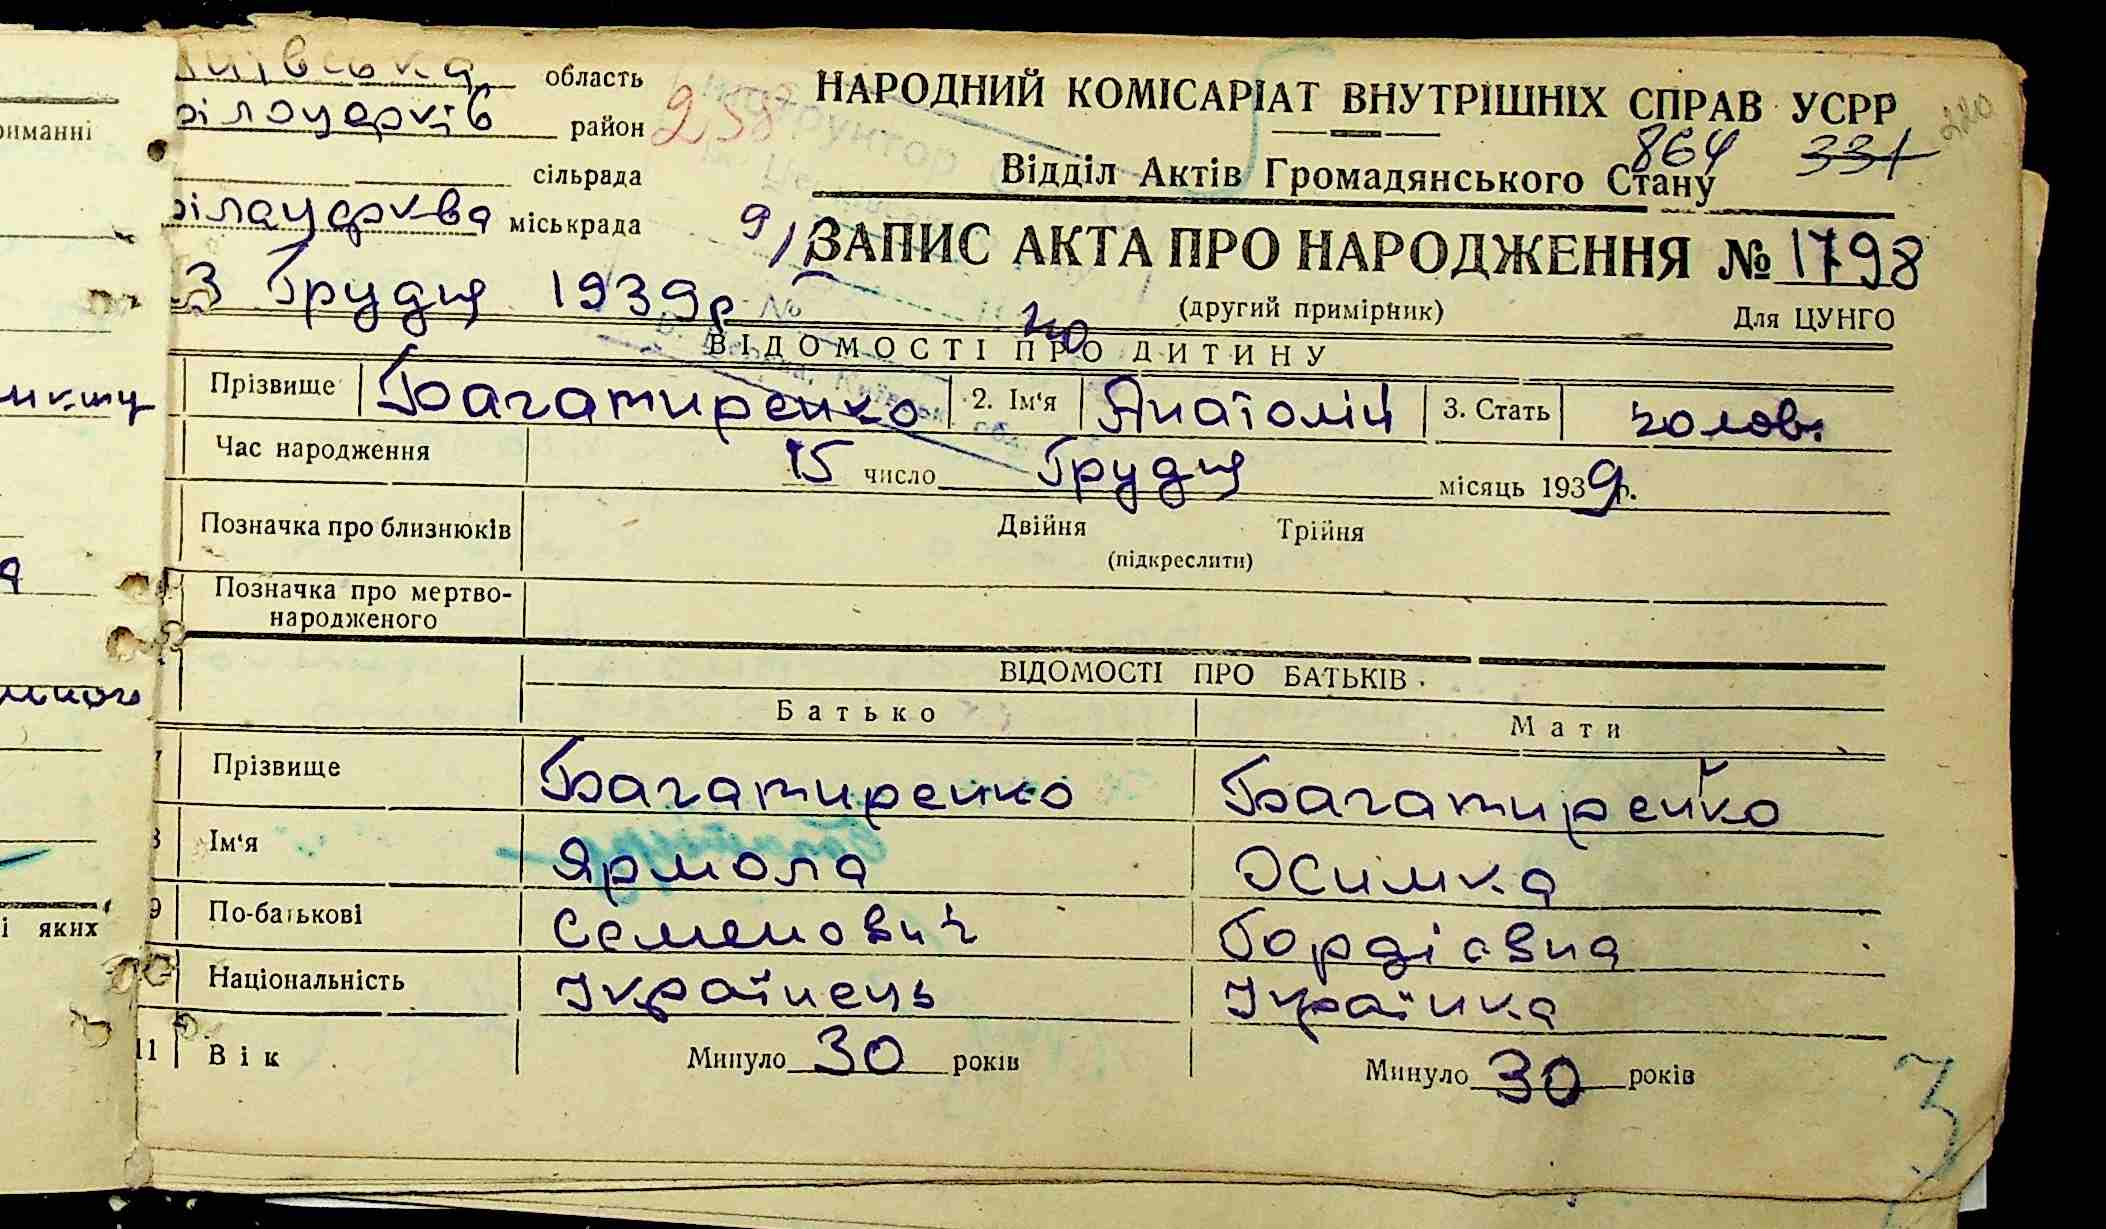 Київська область
НАРОДНИЙ КОМІСАРІАТ ВНУТРІШНІХ СПРАВ УСРР
220
Білоцерків район
258
864 331
Відділ Актів Громадянського Стану
сільрада
Білацерква міськрада
9/
ЗАПИС АКТА ПРО НАРОДЖЕННЯ № 1798
3 Грудня 1939р
(другий примірник) Для ЦУНГО
ВІДОМОСТІ ПРО ДИТИНУ
Прізвище Багатиренко 2. Ім'я Анатолій 3. Стать чолов.
Час народження 15 число Грудня місяць 1939р.
Позначка про близнюків Двійня Трійня
(підкреслити)
Позначка про мертво-
народженого
ВІДОМОСТІ ПРО БАТЬКІВ
Батько Мати
7 Прізвище Багатиренко Багатиренко
8 Ім'я Ярмола Осимка
9 По-батькові Семенович Гордієвна
Національність Українець Українка
11 Вік Минуло 30 років Минуло 30 років
3
риманні
і яких